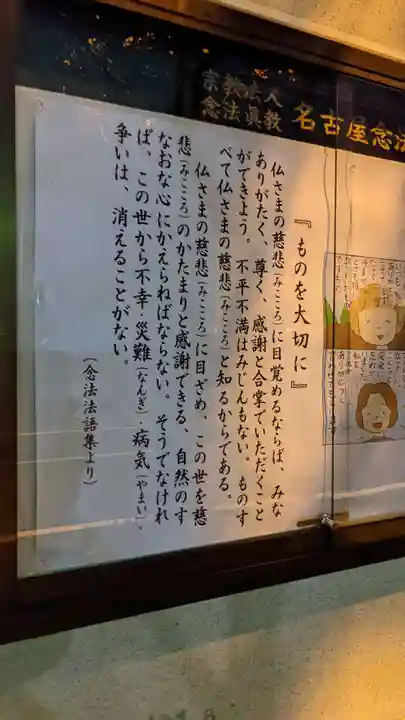 宗教法人
念法眞教
名古屋念法
『ものを大切に』
仏さまの慈悲(みこころ)に目覚めるならば、みな
ありがたく、尊く、感謝と合掌でいただくこと
ができよう。不平不満はみじんもない。ものす
べて仏さまの慈悲(みこころ)と知るからである。
仏さまの慈悲(みこころ)に目ざめ、この世を慈
悲(みこころ)のかたまりと感謝できる、自然のす
なおな心にかえらねばならない。そうでなけれ
ば、この世から不幸・災難(なんぎ)・病気(やまい)・
争いは、消えることがない。
(念法法語集より)